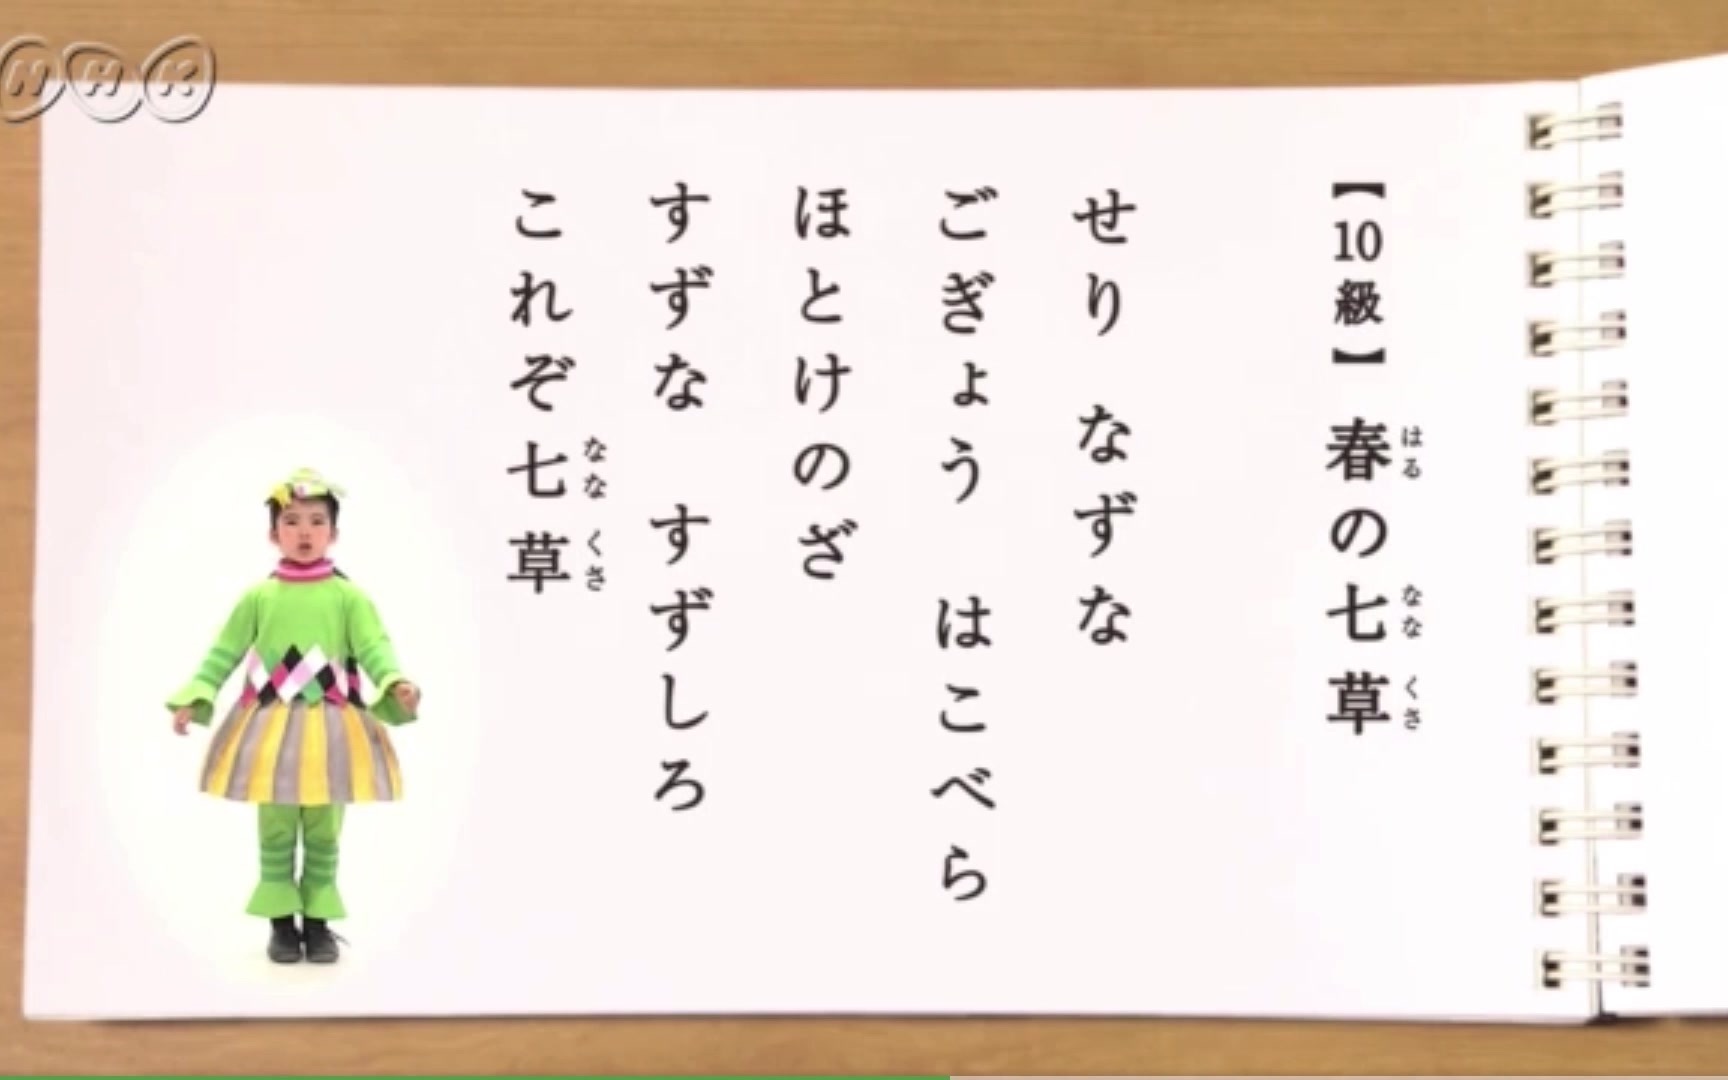 NHK
【10級】春の七草
はる
なな
くさ
せり なずな
ごぎょう はこべら
ほとけのざ
すずな すずしろ
これぞ七草
なな
くさ